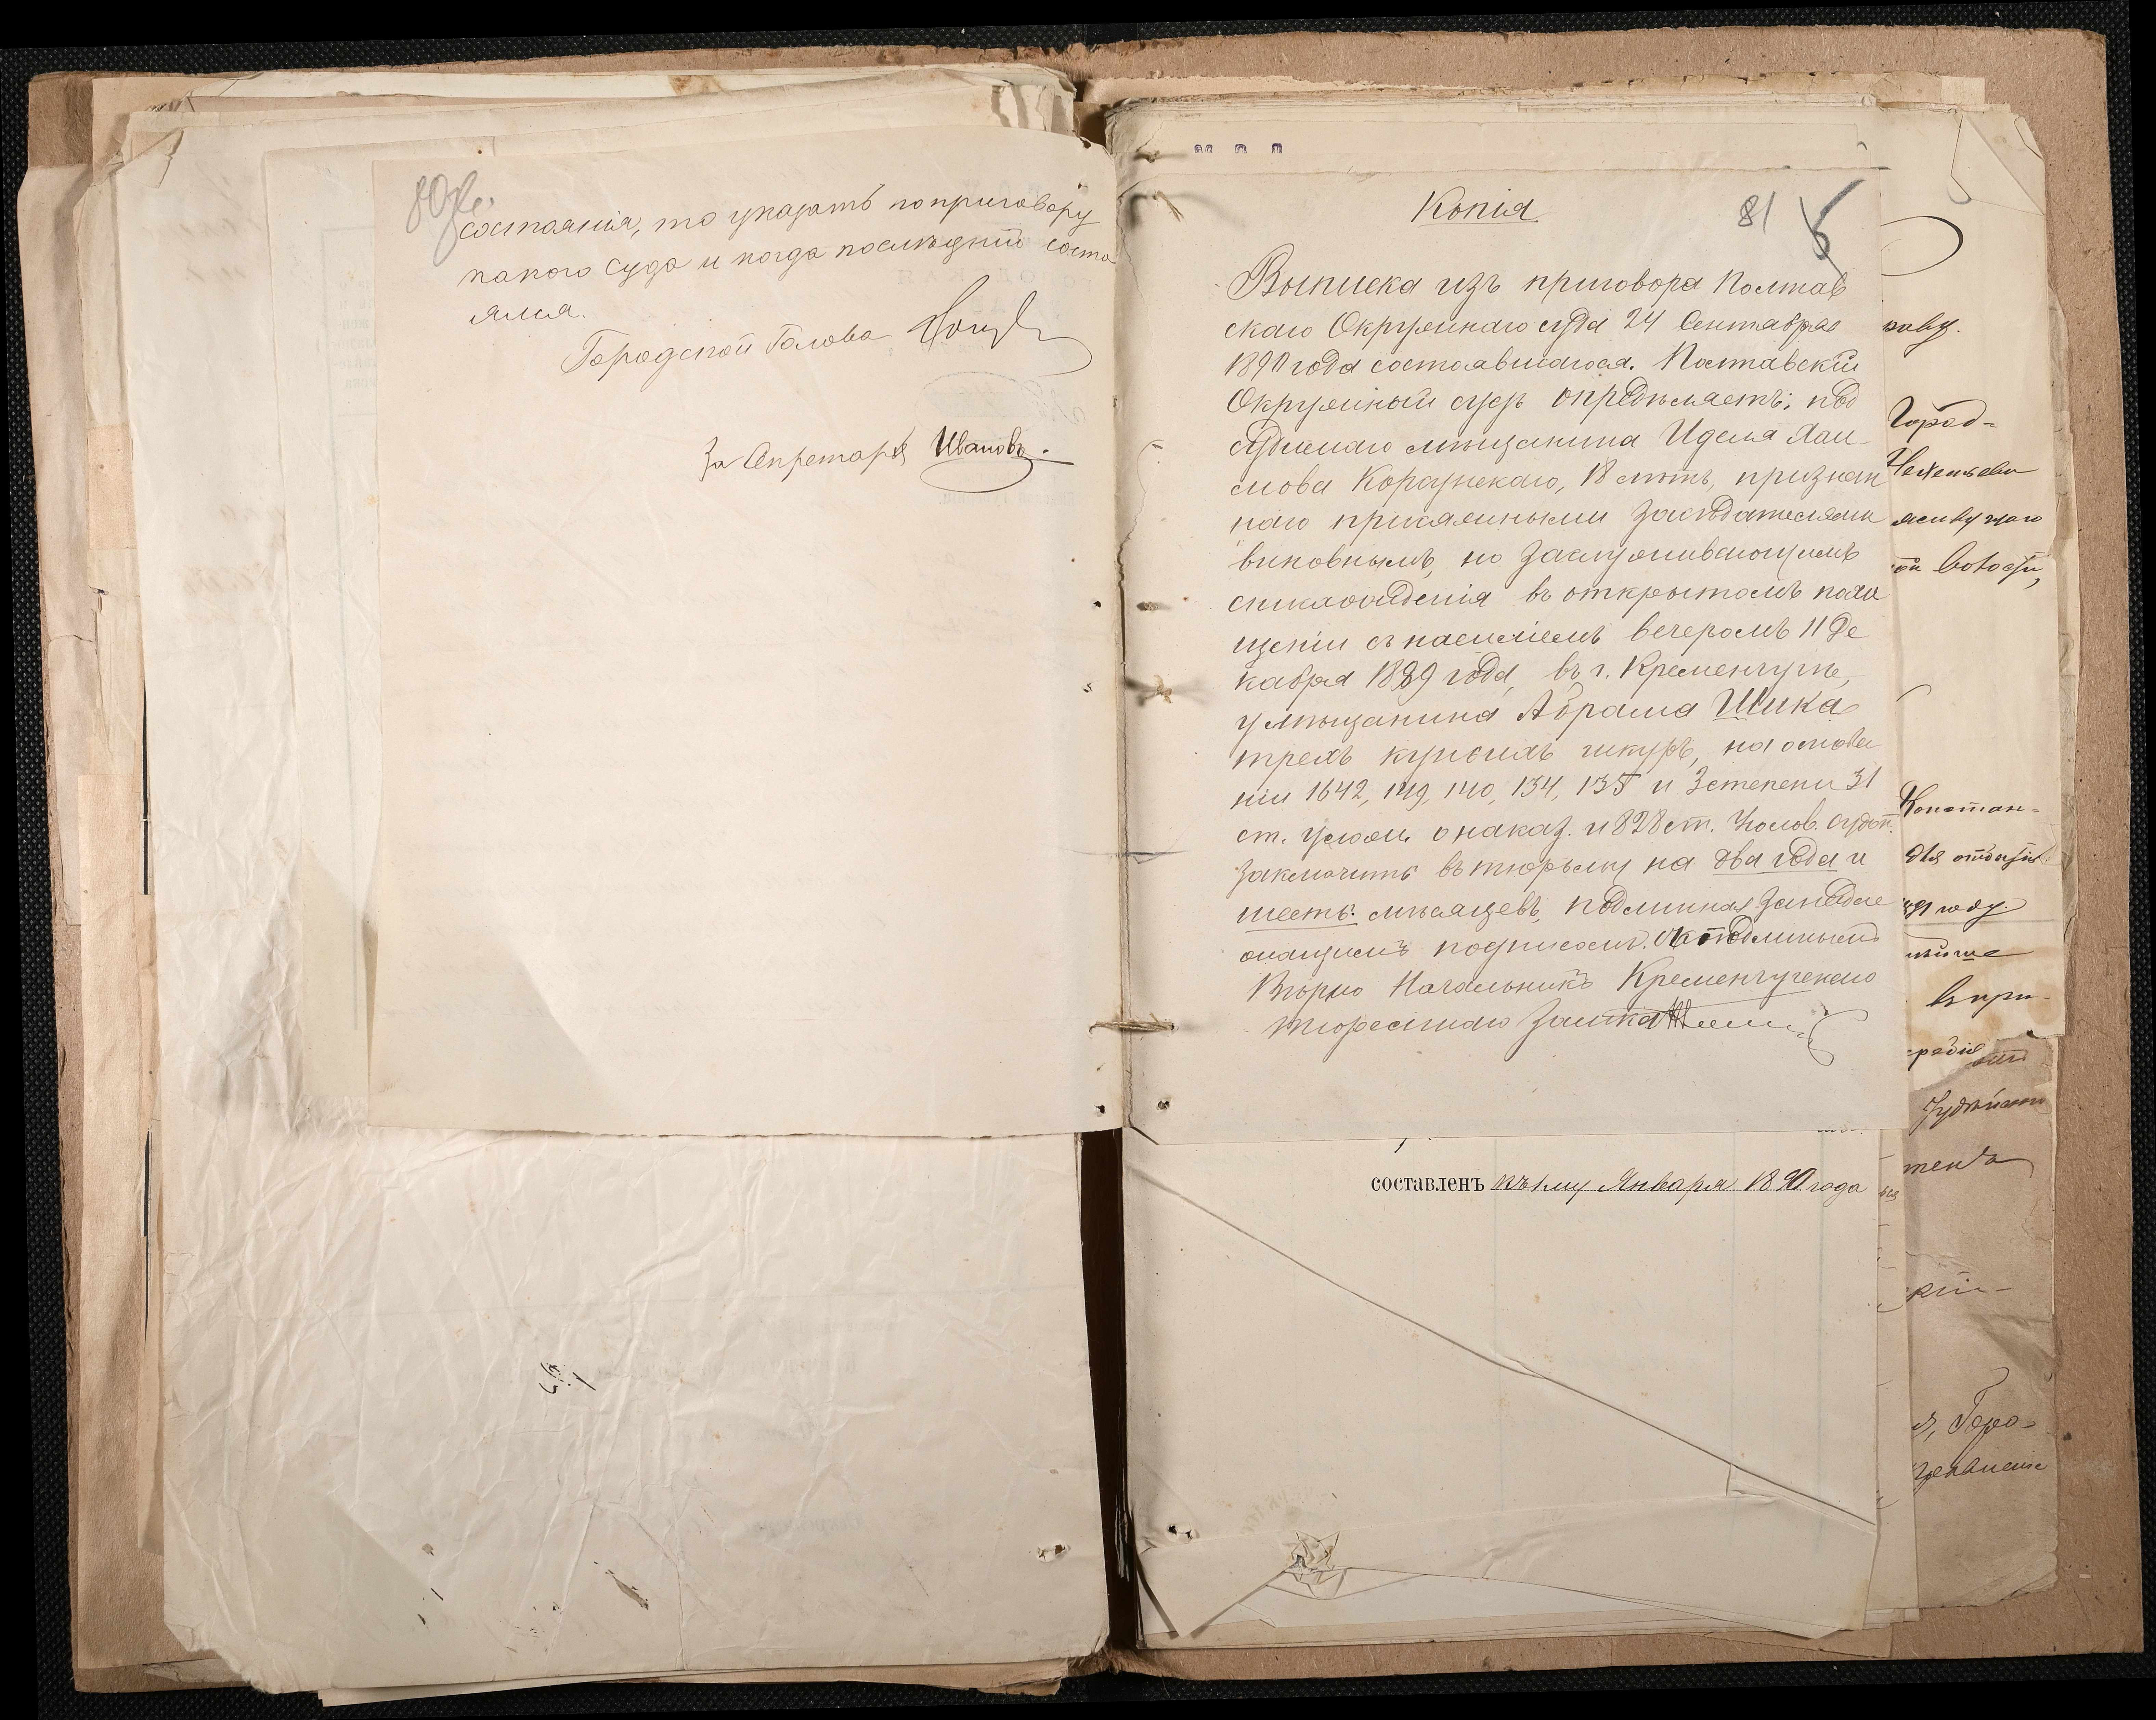 80 об.
состоянія, то указать по приговору
какого суда и когда послѣдній состо
ялся.
Городской Голова
За Секретаря Ивановъ.
Копія
81
Выписка изъ приговора Полтав
скаго Окружнаго суда 24 Сентября
1890 года состоявшагося. Полтавскій
Окружный судъ опредѣляетъ: под
судимаго мѣщанина Иделя Хаи
мова 18 лѣтъ, признан
наго присяжными засѣдателями
виновнымъ, но заслуживающимъ
снисхожденія въ открытомъ похи
щеніи съ насиліемъ вечеромъ 11 Де
кабря 1889 года, въ г. Кременчугѣ,
у мѣщанина Абрама Шика
трехъ куньихъ шкуръ, на основа
ніи 1642, 149, 140, 134, 135 и 3 степени 31
ст. улож. о наказ. и 828 ст. Уголов. судоп.
заключить въ тюрьму на два года и
шесть мѣсяцевъ, подлинная за надле
жащимъ подписомъ. Съ подлиннымъ
Вѣрно Начальникъ Кременчугскаго
тюремнаго замка
составленъ къ 1му Января 1890 года
Город-
волости,
Констан-
91 году.
въ при-